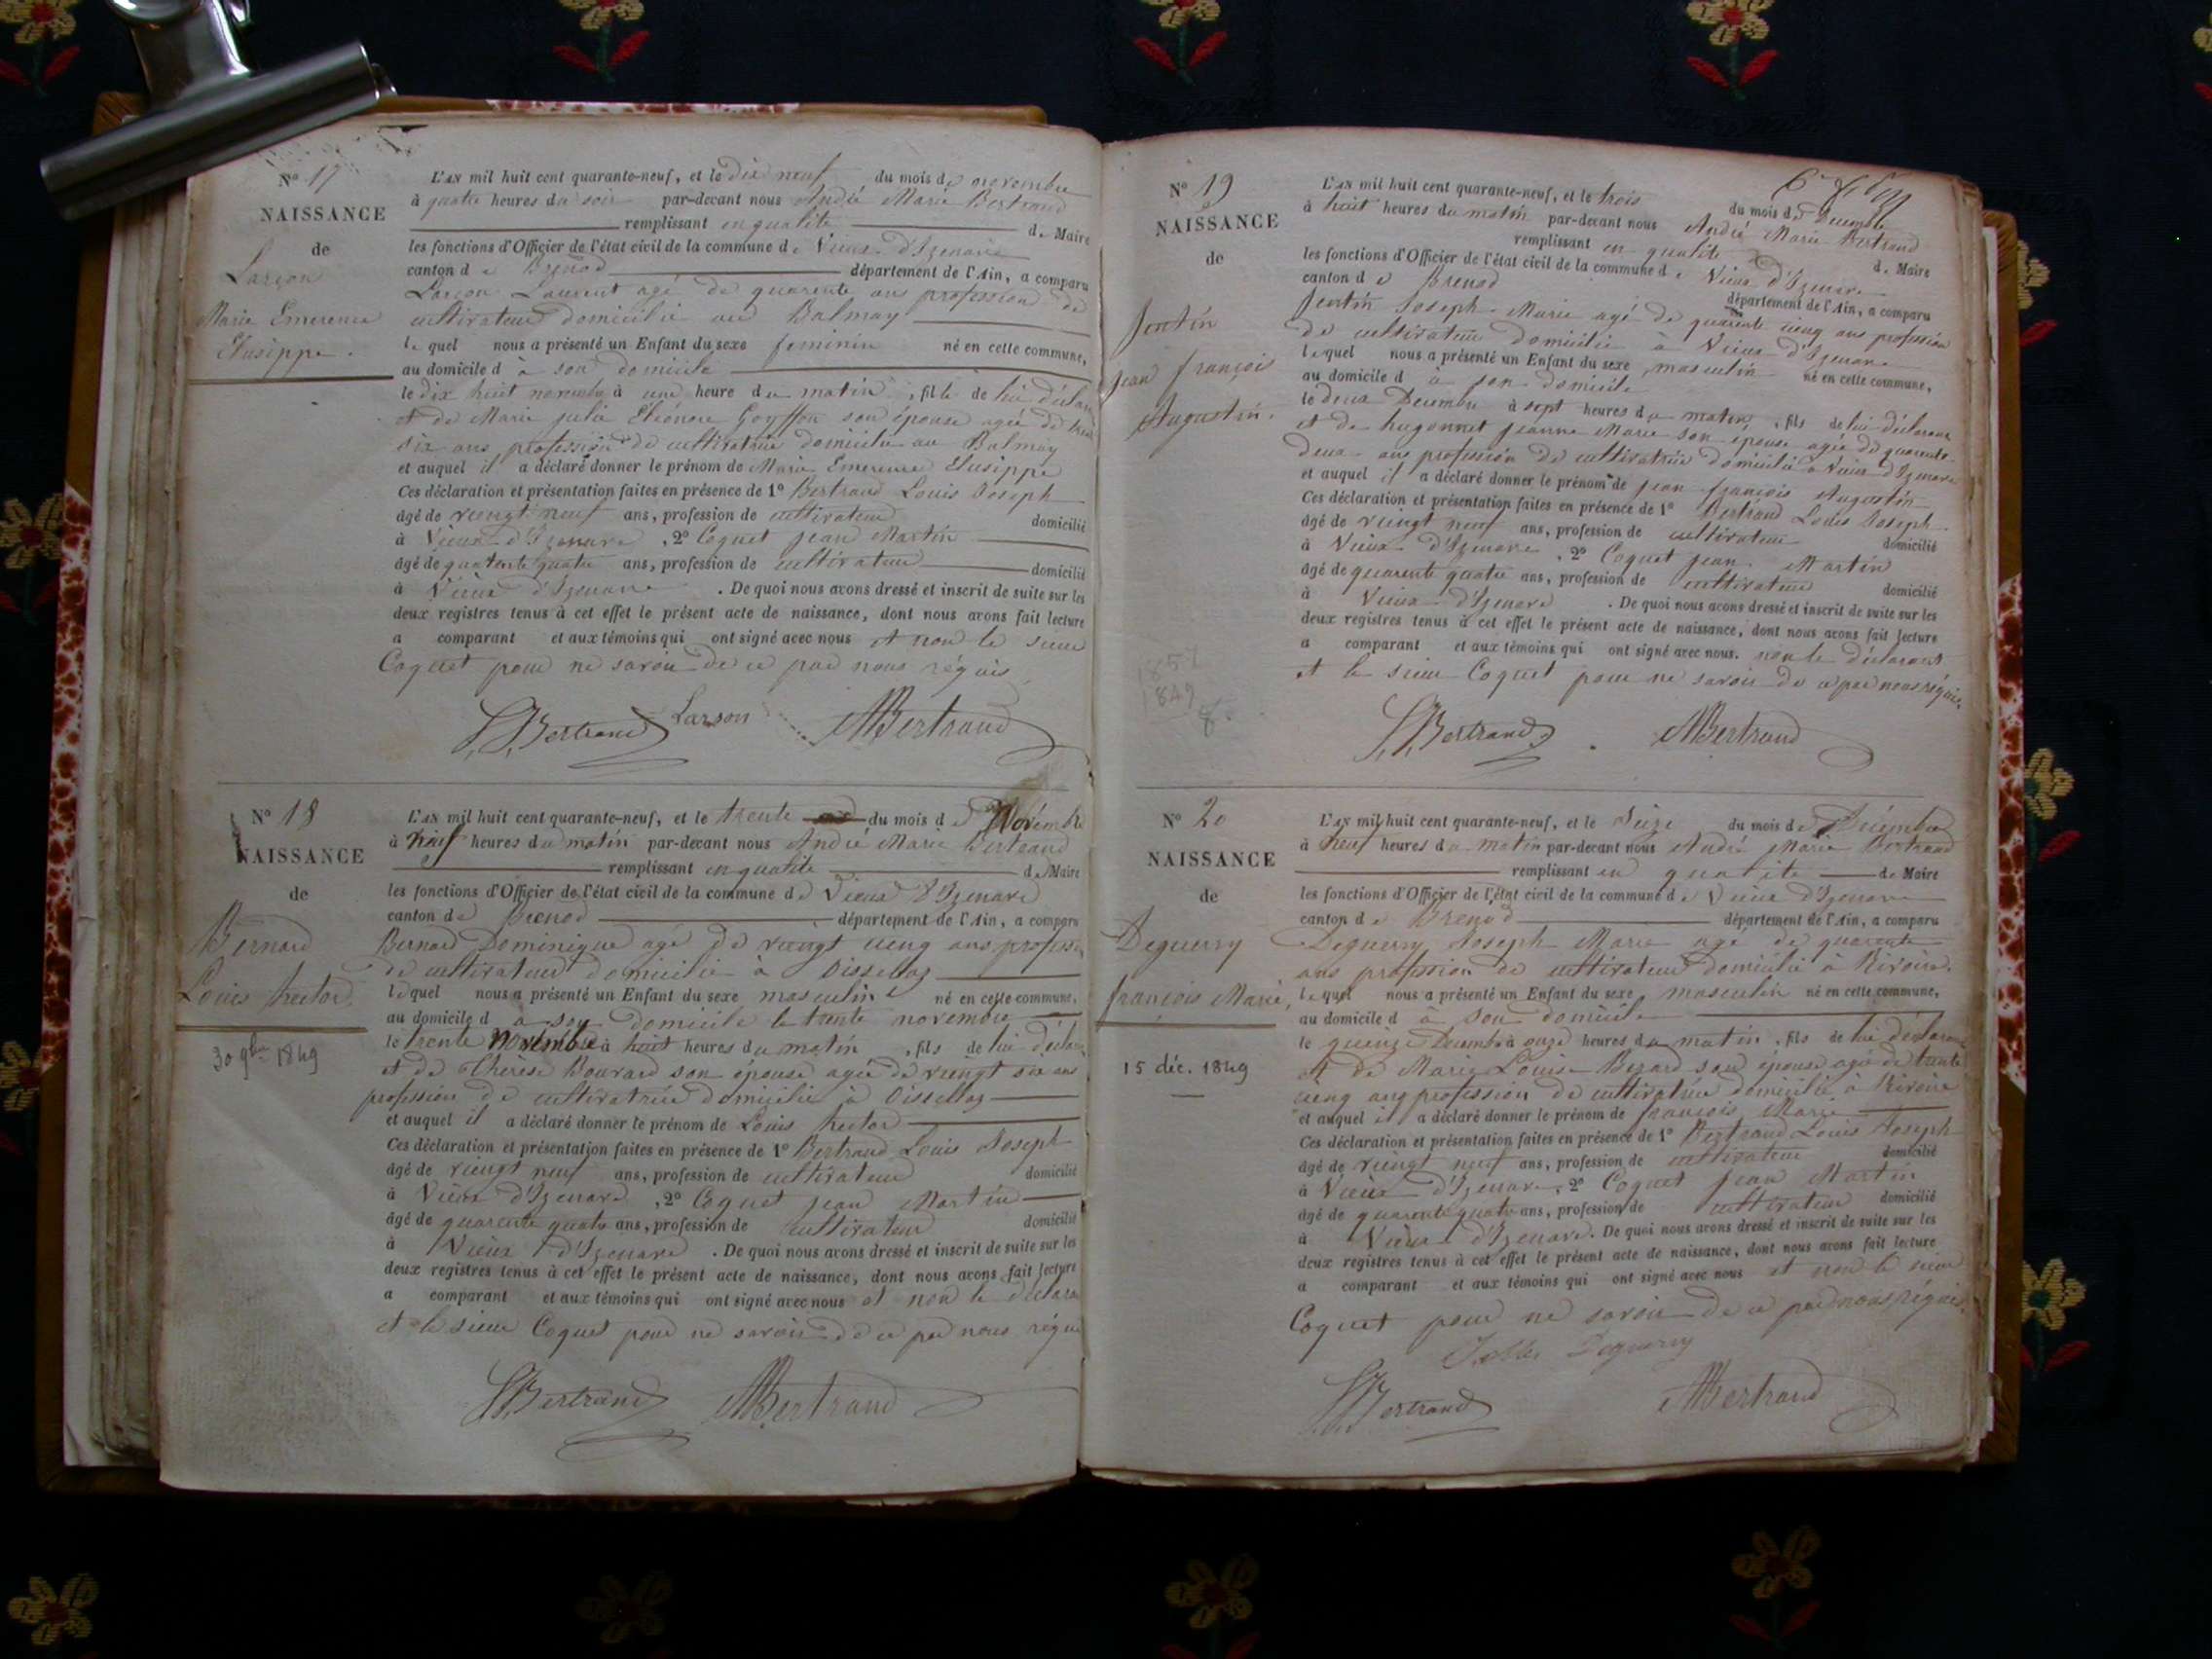 N° 17
NAISSANCE
de
Larçon
Marie Emerence
Elusippe.
L'AN mil huit cent quarante-neuf, et le dix neuf du mois de novembre
à quatre heures du soir par-devant nous André Marie Bertrand
remplissant en qualité de Maire
les fonctions d'Officier de l'état civil de la commune de Vieux d'Izenave
canton de Brenod département de l'Ain, a comparu
Larçon Laurent agé de quarente ans profession de
cultivateur domicilié au Balmay
lequel nous a présenté un Enfant du sexe feminin né en cette commune,
au domicile d à son domicile
le dix huit novembre à une heure du matin, fille de lui déclarant
et de Marie julie Eléonore Goyffon son épouse agée de trente
six ans profession de cultivatrice domicilié au Balmay
et auquel il a déclaré donner le prénom de Marie Emerence Elusippe
Ces déclaration et présentation faites en présence de 1° Bertrand Louis Joseph
âgé de vingt neuf ans, profession de cultivateur domicilié
à Vieux d'Izenave, 2° Coquet jean Martin
âgé de quarente quatre ans, profession de cultivateur domicilié
à Vieux d'Izenave. De quoi nous avons dressé et inscrit de suite sur les
deux registres tenus à cet effet le présent acte de naissance, dont nous avons fait lecture
a comparant et aux témoins qui ont signé avec nous et non le sieur
Coquet pour ne savoir de ce par nous réquis
LJBertrand Larson AMBertrand
N° 18
NAISSANCE
de
Bernard
Louis hector.
30 9bre 1849
L'AN mil huit cent quarante-neuf, et le trente du mois de Novembre
à neuf heures du matin par-devant nous André Marie Bertrand
remplissant en qualité de Maire
les fonctions d'Officier de l'état civil de la commune de Vieux d'Izenave
canton de Brenod département de l'Ain, a comparu
Bernard Dominique agé de vingt cinq ans profession
de cultivateur domicilié à Oissellaz
lequel nous a présenté un Enfant du sexe masculin né en cette commune,
au domicile d à son domicile le trente novembre
le trente Novembre à huit heures du matin, fils de lui déclarant
et de Thérèse Bouvard son épouse agée de vingt six ans
profession de cultivatrice domicilié à Oissellaz
et auquel il a déclaré donner le prénom de Louis hector
Ces déclaration et présentation faites en présence de 1° Bertrand Louis Joseph
âgé de vingt neuf ans, profession de cultivateur domicilié
à Vieux d'Izenave, 2° Coquet jean Martin
âgé de quarente quatre ans, profession de cultivateur domicilié
à Vieux d'Izenave. De quoi nous avons dressé et inscrit de suite sur les
deux registres tenus à cet effet le présent acte de naissance, dont nous avons fait lecture
a comparant et aux témoins qui ont signé avec nous et non le déclarant
et le sieur Coquet pour ne savoir de ce par nous réquis
LJBertrand AMBertrand
N° 19
NAISSANCE
de
Jentin
jean françois
Augustin.
1857
1849
8
L'AN mil huit cent quarante-neuf, et le trois du mois de Decembre
à huit heures du matin par-devant nous André Marie Bertrand
remplissant en qualité de Maire
les fonctions d'Officier de l'état civil de la commune de Vieux d'Izenave
canton de Brenod département de l'Ain, a comparu
Jentin Joseph Marie agé de quarente cinq ans profession
de cultivateur domicilié à Vieux d'Izenave
lequel nous a présenté un Enfant du sexe masculin né en cette commune,
au domicile d à son domicile
le deux Decembre à sept heures du matin, fils de lui déclarant
et de hugonnet jeanne Marie son épouse agée de quarente
deux ans profession de cultivatrice domicilié à Vieux d'Izenave
et auquel il a déclaré donner le prénom de jean françois Augustin
Ces déclaration et présentation faites en présence de 1° Bertrand Louis Joseph
âgé de vingt neuf ans, profession de cultivateur domicilié
à Vieux d'Izenave, 2° Coquet jean Martin
âgé de quarente quatre ans, profession de cultivateur domicilié
à Vieux d'Izenave. De quoi nous avons dressé et inscrit de suite sur les
deux registres tenus à cet effet le présent acte de naissance, dont nous avons fait lecture
a comparant et aux témoins qui ont signé avec nous. non le déclarant
et le sieur Coquet pour ne savoir de ce par nous réquis.
LJBertrand AMBertrand
N° 20
NAISSANCE
de
Deguerry
françois Marie
15 déc. 1849
L'AN mil huit cent quarante-neuf, et le Seize du mois de Décembre
à neuf heures du matin par-devant nous André Marie Bertrand
remplissant en qualité de Maire
les fonctions d'Officier de l'état civil de la commune de Vieux d'Izenave
canton de Brenod département de l'Ain, a comparu
Deguerry Joseph Marie agé de quarente
ans profession de cultivateur domicilié à Rivoire.
lequel nous a présenté un Enfant du sexe masculin né en cette commune,
au domicile d à son domicile
le quinze Decembre à onze heures du matin, fils de lui déclarant
et de Marie Louise Bezard son épouse agé de trente
cinq ans profession de cultivatrice domicilié à Rivoire
et auquel il a déclaré donner le prénom de françois Marie
Ces déclaration et présentation faites en présence de 1° Bertrand Louis Joseph
âgé de vingt neuf ans, profession de cultivateur domicilié
à Vieux d'Izenave, 2° Coquet jean Martin
âgé de quarente quatre ans, profession de cultivateur domicilié
à Vieux d'Izenave. De quoi nous avons dressé et inscrit de suite sur les
deux registres tenus à cet effet le présent acte de naissance, dont nous avons fait lecture
a comparant et aux témoins qui ont signé avec nous et non le sieur
Coquet pour ne savoir de ce par nous réquis.
Deguerry
LJBertrand AMBertrand